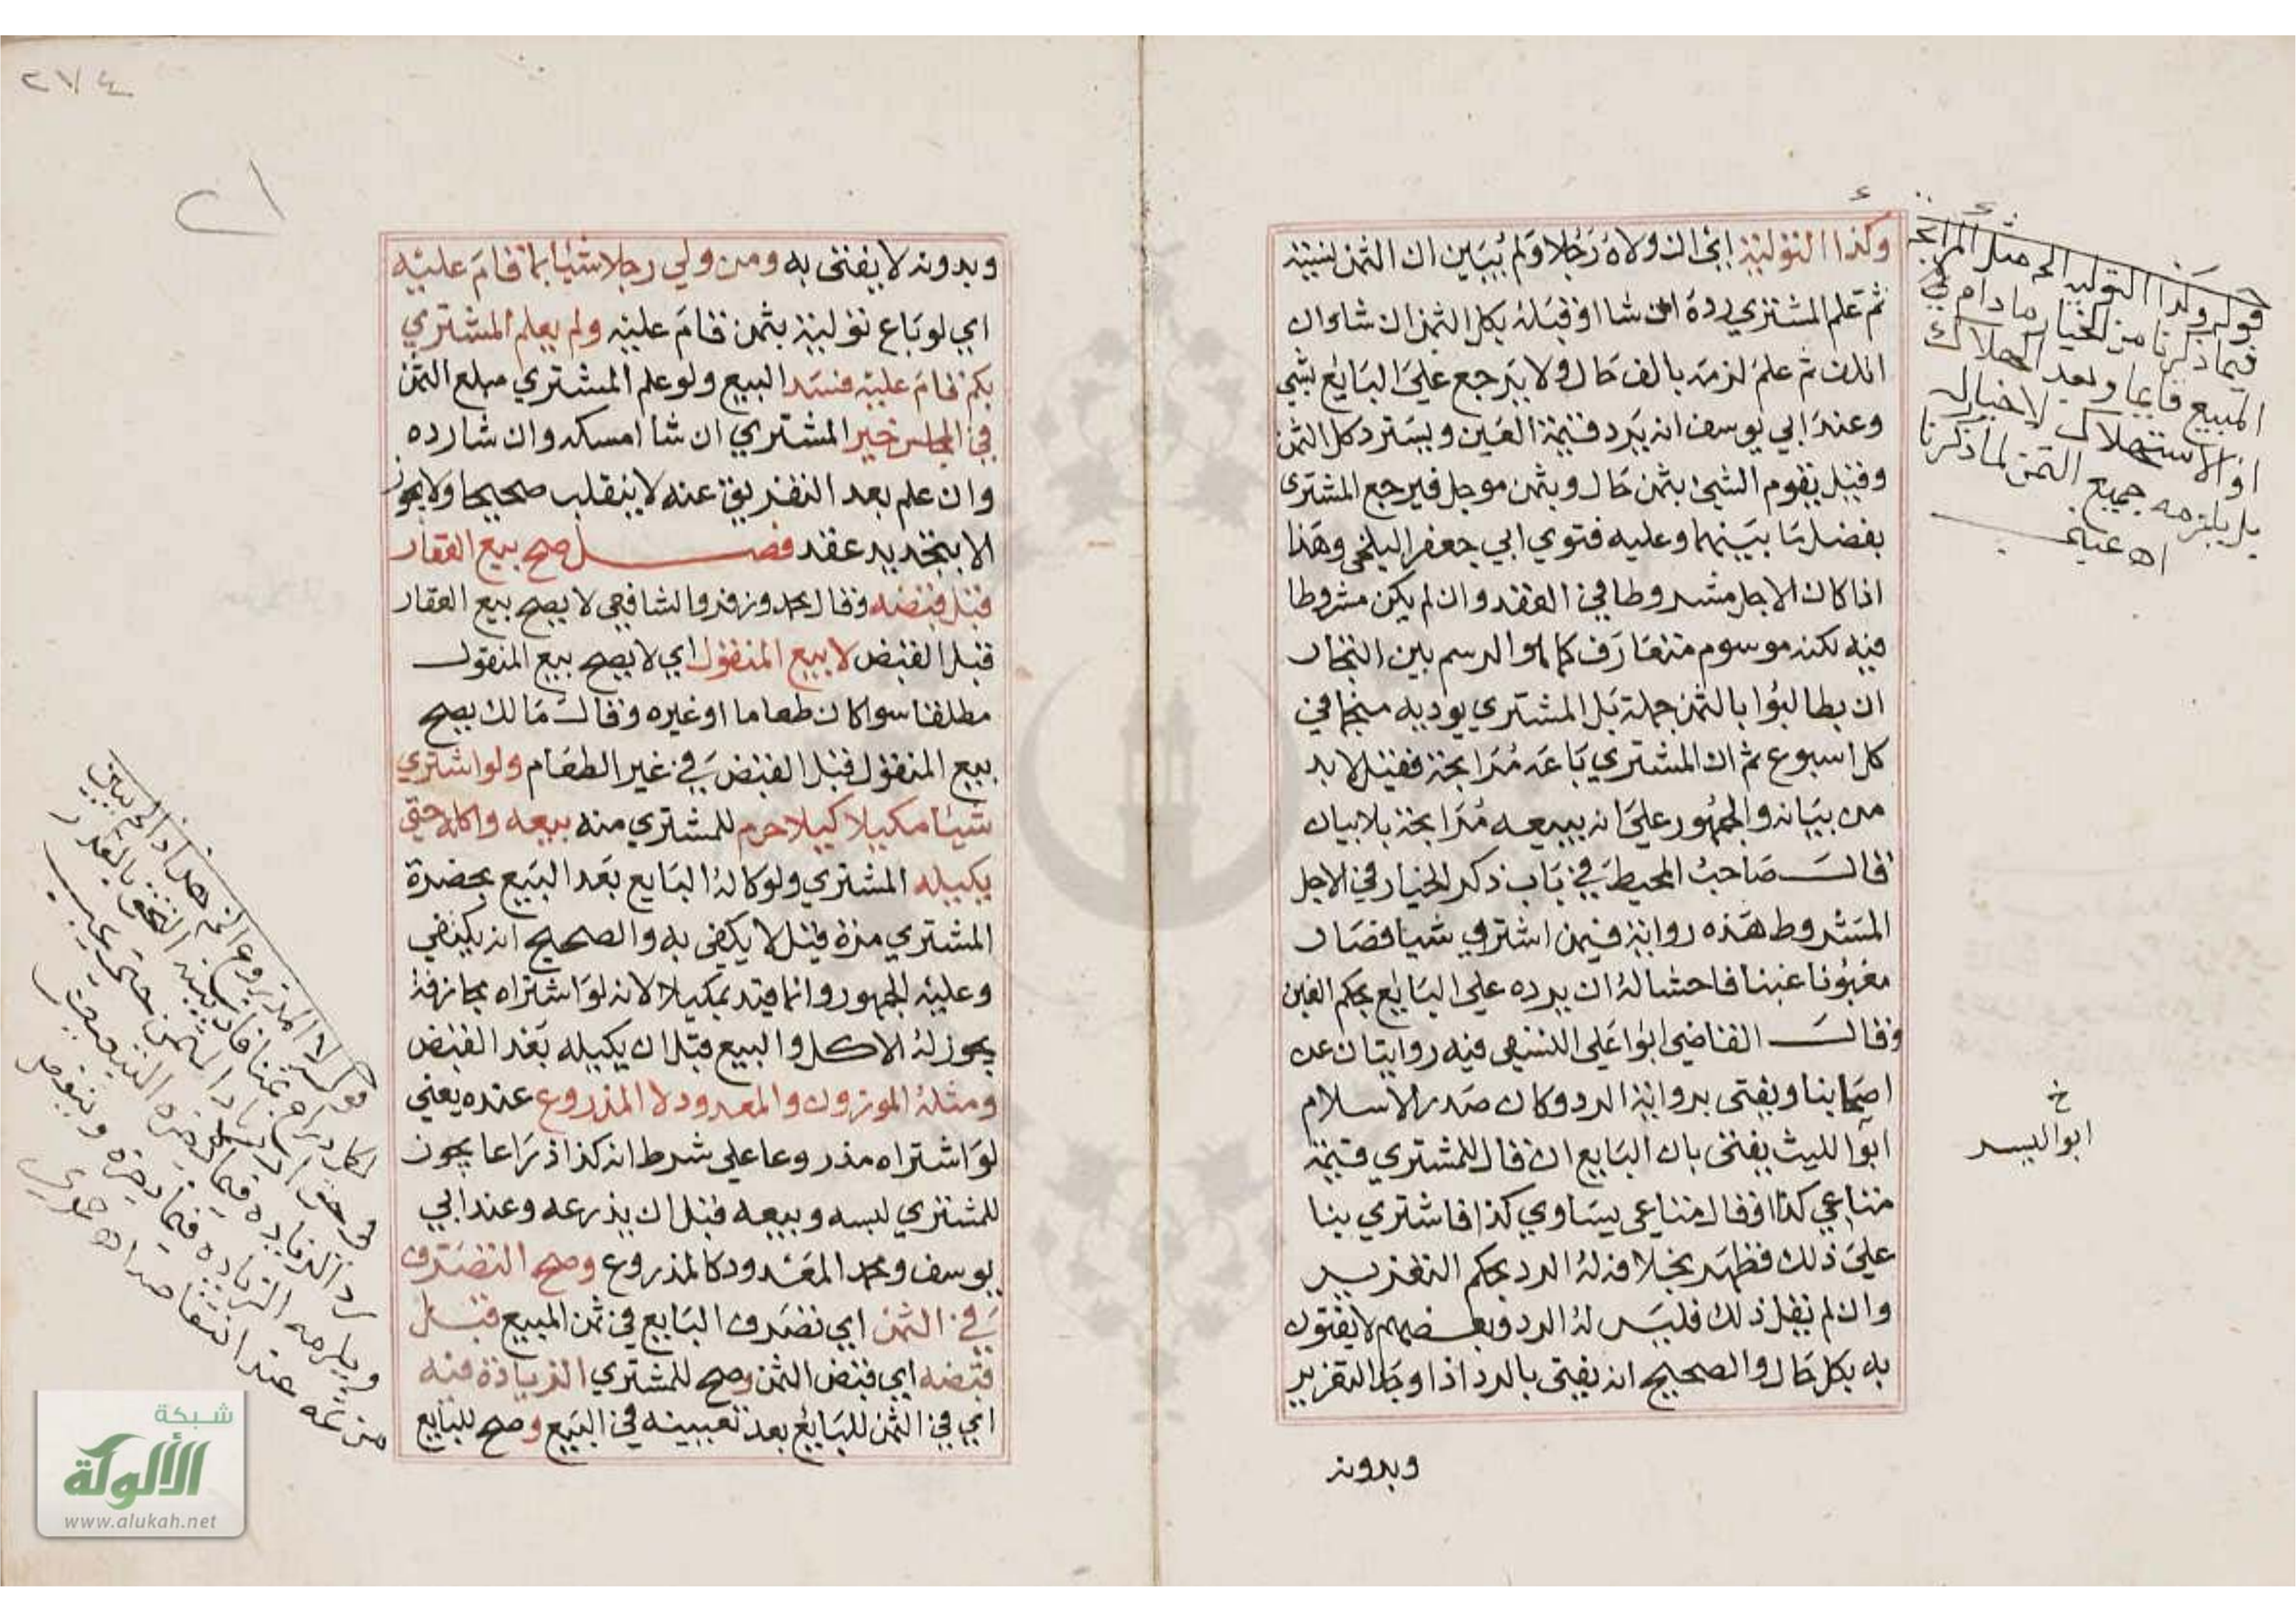 وكذا التولية اي ان ولاه رجلا ولم يبين ان الثمن نسيئة
ثم علم المشتري رده ان شا او قبله بكل الثمن ان شا وان
اتلف ثم علم لزمه بالف حال ولا يرجع على البايع بشي
وعند ابي يوسف انه يرد قيمة العين ويسترد كل الثمن
وقيل يقوم الشي بثمن حال وبثمن موجل فيرجع المشتري
بفضل ما بينهما وعليه فتوي ابي جعفر البلخي وهذا
اذا كان الاجل مشروطا في العقد وان لم يكن مشروطا
فيه لكنه موسوم متعارف كما هو الرسم بين التجار
ان يطالبوا بالثمن جملة بل المشتري يوديه منجما في
كل اسبوع ثم ان المشتري باعه مرابحة فقيل لا بد
من بيانه والجمهور على انه يبيعه مرابحة بلا بيان
قال صاحب المحيط في باب ذكر الخيار في الاجل
المشروط هذه رواية فيمن اشترى شيا فصار
مغبونا غبنا فاحشا له ان يرده على البايع بحكم الغبن
وقال القاضي ابوا على النسفي فيه روايتان عن
اصحابنا ويفتى برواية الرد وكان صدر الاسلام
ابوا الليث يفتى بان البايع ان قال للمشتري قيمة
متاعي كذا او قال متاعي يساوي كذا فاشتري بنا
على ذلك فظهر بخلافه له الرد بحكم التغرير
وان لم يقل ذلك فليس له الرد وبعضهم لا يفتون
به بكل حال والصحيح انه يفتى بالرد اذا وجد التغرير
وبدونه
قوله وكذا التولية الخ مثل المرابحة
فيما ذكرنا من الخيار مادام
المبيع قايما وبعد الهلاك
او الاستهلاك لا خيار له
بل يلزمه جميع الثمن لما ذكرنا
اه عيني
خ
ابو اليسر
٢٧٤
وبدونه لا يفتى به ومن ولي رجلا شيئا بما قام عليه
اي لو باع تولية بثمن قام عليه ولم يعلم المشتري
بكم قام عليه فسد البيع ولو علم المشتري مبلع الثمن
في المجلس خير المشتري ان شا امسكه وان شا رده
وان علم بعد التفريق عنه لا ينقلب صحيحا ولا يجوز
الا بتجديد عقد فصل صح بيع العقار
قبل قبضه وقال محمد وزفر والشافعي لا يصح بيع العقار
قبل القبض لا بيع المنقول اي لا يصح بيع المنقول
مطلقا سوا كان طعاما او غيره وقال مالك يصح
بيع المنقول قبل القبض في غير الطعام ولو اشتري
شيئا مكيلا كيلا حرم للمشتري منه بيعه واكله حتى
يكيله المشتري ولو كاله البايع بعد البيع بحضرة
المشتري مرة قيل لا يكفي به والصحيح انه يكتفي
وعليه الجمهور وانما قيد بمكيلا لانه لو اشتراه مجازفة
يجوز له الاكل والبيع قبل ان يكيله بعد القبض
ومثله الموزون والمعدود لا المذروع عنده يعني
لو اشتراه مذروعا على شرط انه كذا ذراعا يجوز
للمشتري لبسه وبيعه قبل ان يذرعه وعند ابي
يوسف ومحمد المعدود كالمذروع وصح التصرف
في الثمن اي تصرف البايع في ثمن المبيع قبل
قبضه اي قبض الثمن وصح للمشتري الزيادة فيه
اي في الثمن للبايع بعد تعيينه في البيع وصح للبايع
قوله لا المذروع الخ هذا اذا لم يبين
لكل ذراع ثمنا فان بينه التحق بالقدر
شبكة
الألوكة
www.alukah.net